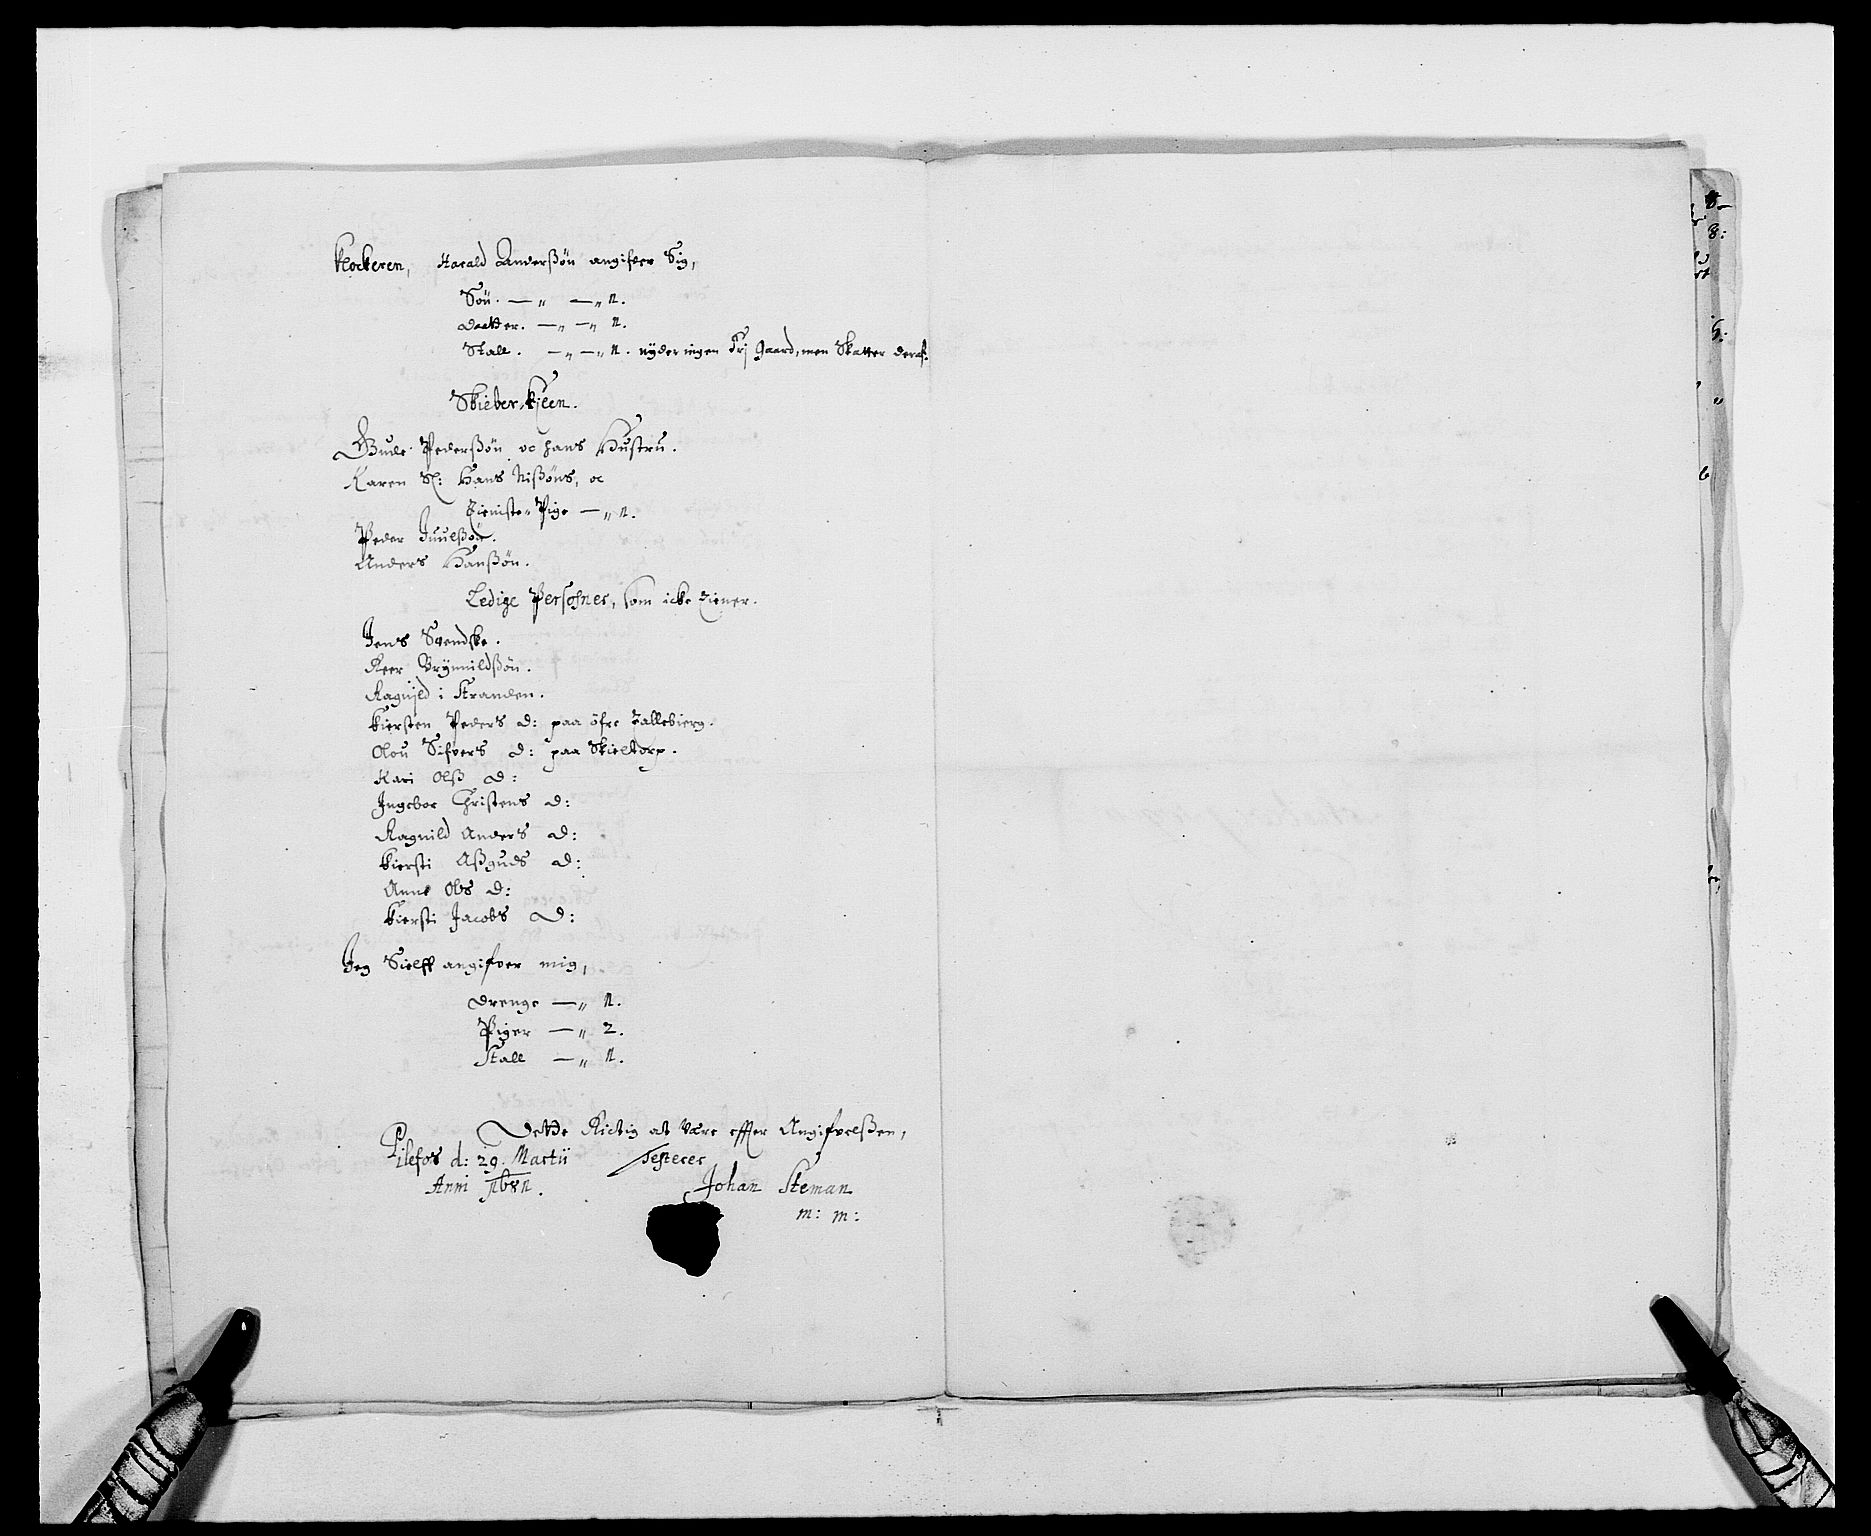 Klockeren, Harald Anderßøn angifver Sig,
Søn. — " — " 1.
Daatter. — " — " 1.
Stall. — " — " 1. nyder ingen Frj Gaard, men Skatter deraf.
Skieberkjlen.
Gude Pederßøn oc hans Hustru.
Karen Sl: Hans Nißøns, oc
Tieniste Pige — " 1.
Peder Juulßøn.
Anders Hanßøn.
Ledige Persohner, som icke tiener.
Jens Svendske.
Peer Brynnildßøn.
Ragnild i Stranden.
Kiersten Peders D: paa øfre Tallebierg.
Olou Sifvers D: paa Skieltorp.
Kari Olß D:
Ingebor Christens D:
Ragnild Anders D:
Kiersti Aßguds D:
Anne Ols D:
Kiersti Jacobs D:
Jeg Sielff angifver mig,
Drenge — " 1.
Piger — " 2.
Stall — " 1.
Dette Rictig at være effter Angifvelßen,
Pilefos d: 29. Martii Testerer
Anni 1681. Johan Steman
m: m: